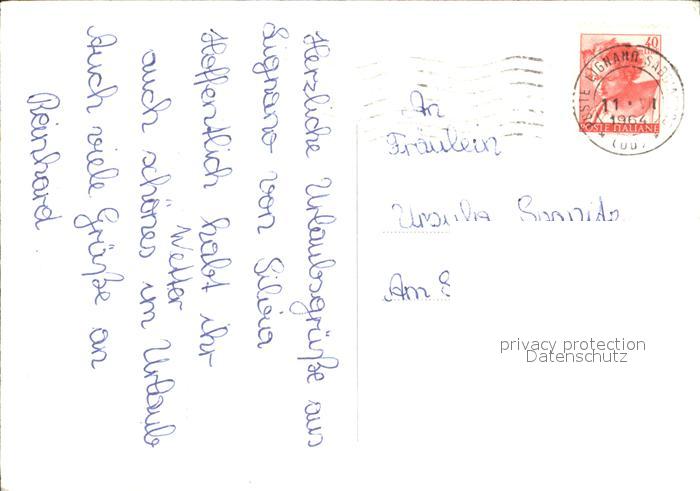 Herzliche Urlaubsgrüße aus
Lignano von Silvia
Hoffentlich habt ihr
auch schönes Wetter im Urlaub
Auch viele Grüße an
Reinhard.
An
Fräulein
Ursula
Am
40
POSTE LIGNANO SABB
11 · VI
1964
(UD)
POSTE ITALIANE
privacy protection
Datenschutz